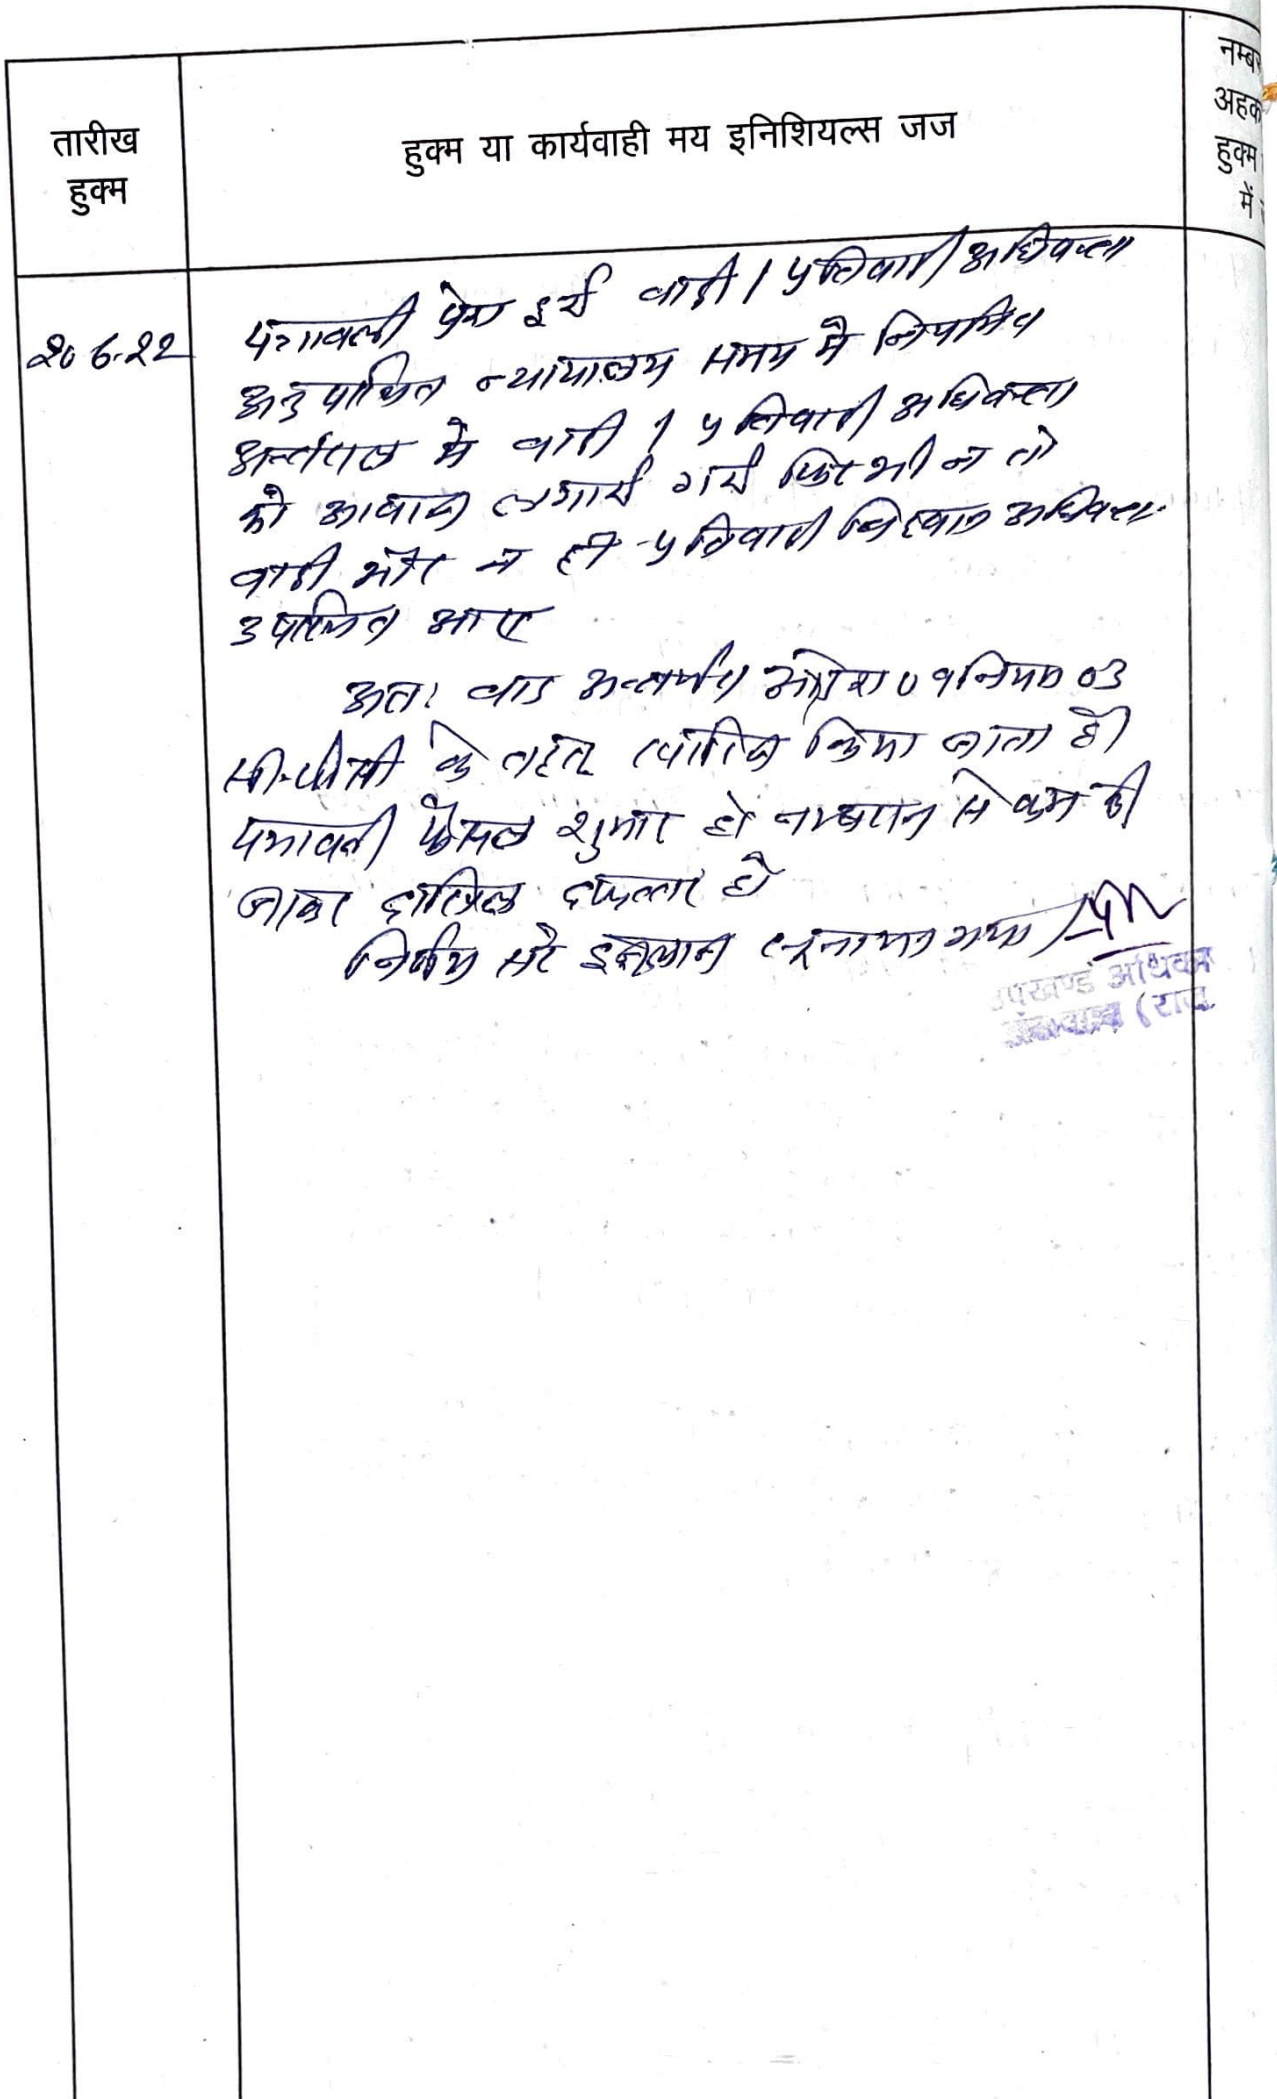 तारीख
हुक्म
हुक्म या कार्यवाही मय इनिशियल्स जज
नम्बर
अहक
हुक्म
में
20.6.22
पत्रावली पेश हुई वादी / प्रतिवादी अधिवक्ता
अनुपस्थित न्यायालय समय मे नियमित
अन्तराल मे वादी / प्रतिवादी अधिवक्ता
को आवाज लगाई गई फिर भी न तो
वादी और न ही प्रतिवादी विद्वान अधिवक्ता
उपस्थित आए
अतः वाद अन्तर्गत आदेश 09 नियम 03
सी.पीसी के तहत खारिज किया जाता है।
पत्रावली फैसल शुमार हो नम्बरान से कम की
जाकर दाखिल दफ्तर हो
निर्णय सरे इजलास सुनाया गया
उपखण्ड अधिका
(राज.